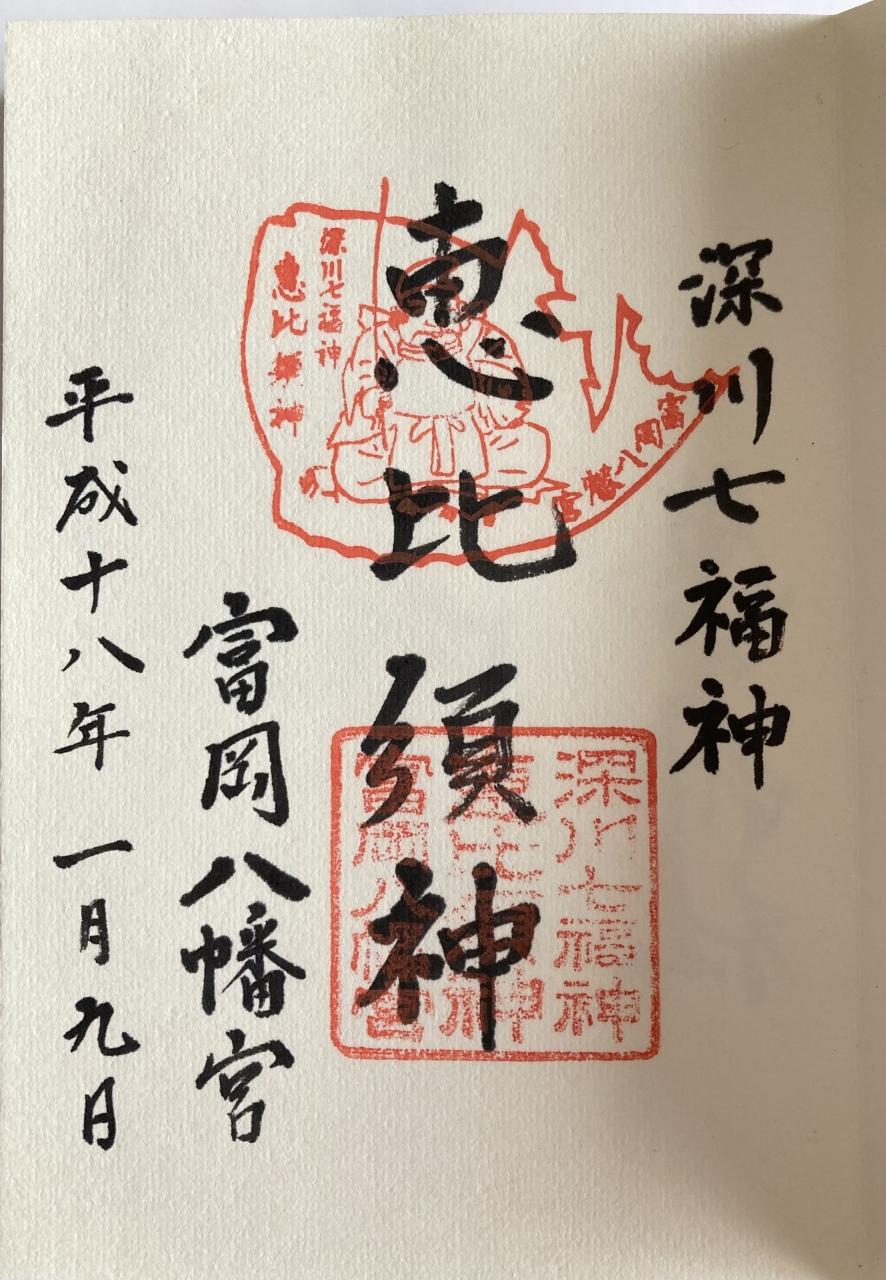 深川七福神
恵比須神
富岡八幡宮
平成十八年 一月九日
深川七福神
恵比須神
富岡八幡宮
深川七福神
恵比須神
富岡八幡宮